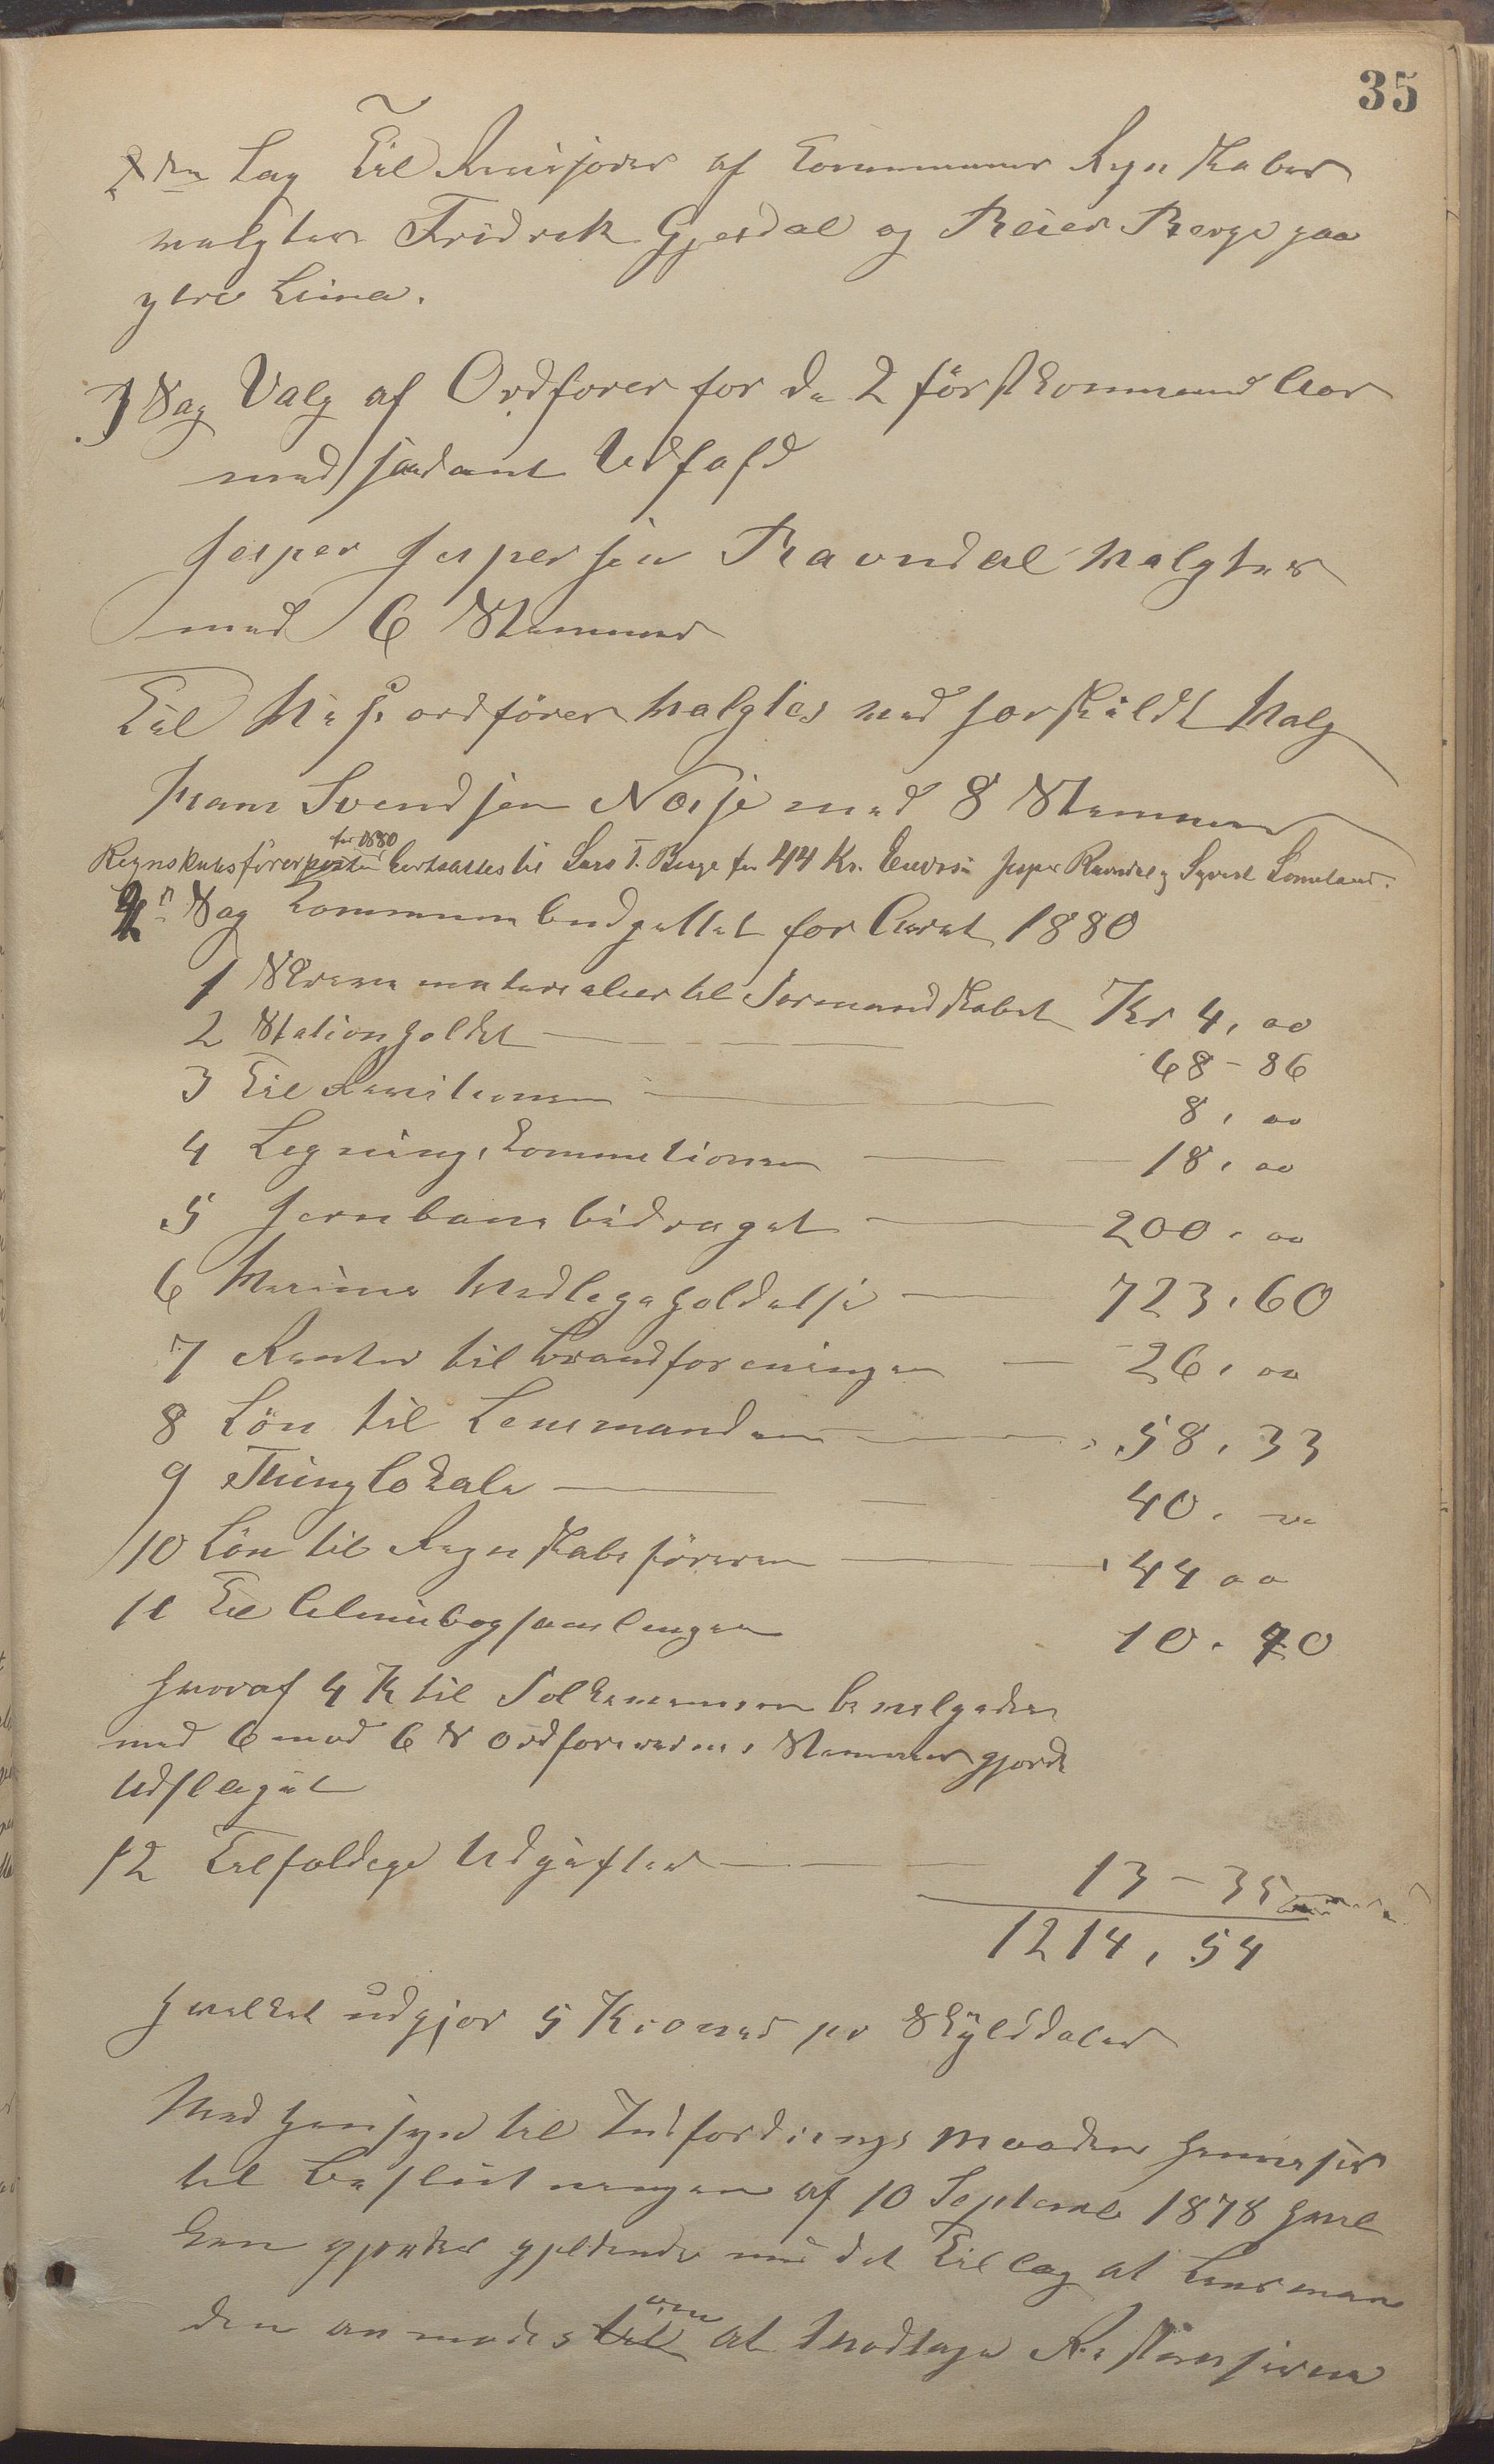 35
2den Sag Til Revisorer af Communens Regnskaber
valgtes Fridrek Gjesdal og Reier Berge paa
ytre Lima.
3 Sag Valg af Ordfører for de 2 førstkommende Aar
med saadant Udfald
Jesper Jespersen Ravndal valgtes
med 6 Stemmer
Til Viseordfører valgtes ved særskildt Valg
Svendsen Noise med 8 Stemmer
for 1880
Regnskabsførerposten bortsattes til Lars T. Berge for 44 Kr. Jesper Ravndal og Sivert Limeland.
4n Sag Communebudgettet for Aaret 1880
1 Skrivematerialier til Formandskabet Kr 4,00
2 Stationholdet 68-86
3 Til Revisionen 8,00
4 Legningskommitionen 18,00
5 Jernbanebidraget 200,00
6 Veienes Vedligeholdelse 723,60
7 Renter til Brandforeningen 26,00
8 Løn til Lensmanden 58,33
9 Thinglokale 40,00
10 Løn til Regnskabsføreren 44 00
11 Til Almuebogsamlingen 10.40
hvoraf 4 K til Folkevennen bevilgedes
med 6 mod 6 & Ordførerens Stemme gjorde
Udslaget
12 Tilfeldige Udgifter 13-35
1214,54
hvilket udgjør 5 Kroner pr Skylddaler
Med Hensyn til Indfordrings Maaden henvises
til Beslutningen af 10 Septembr 1878 hvil
ken gjøres gjeldende med det Tillæg at Lensman
den anmodes til om at modtage Restanserne